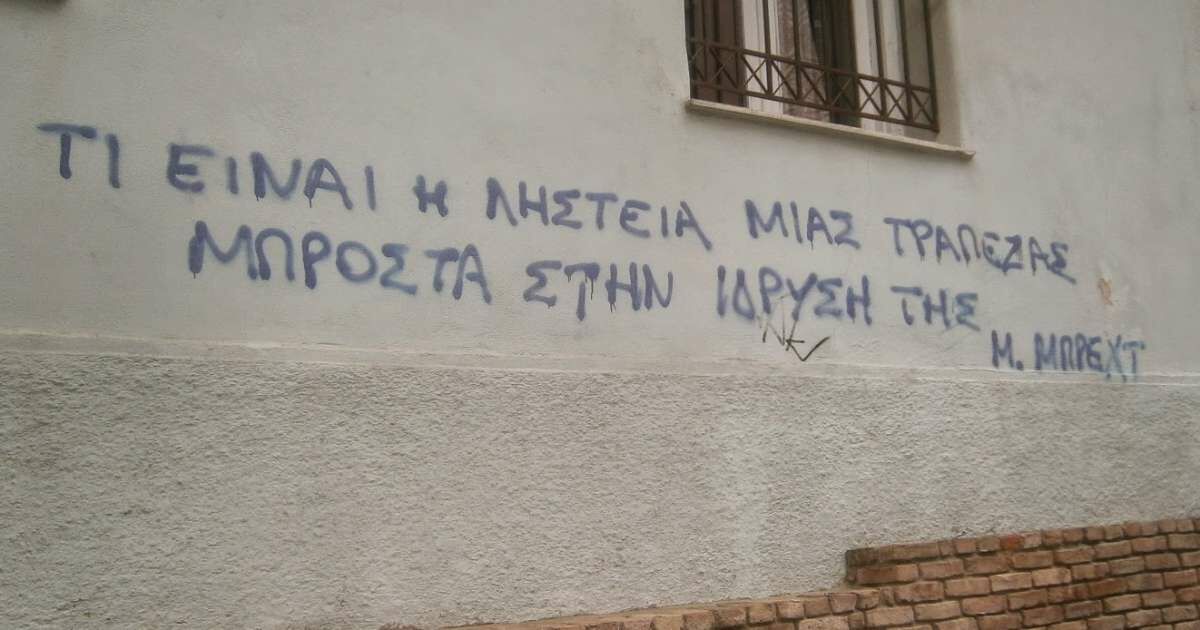 ΤΙ ΕΙΝΑΙ Η ΛΗΣΤΕΙΑ ΜΙΑΣ ΤΡΑΠΕΖΑΣ
ΜΠΡΟΣΤΑ ΣΤΗΝ ΙΔΡΥΣΗ ΤΗΣ
Μ. ΜΠΡΕΧΤ